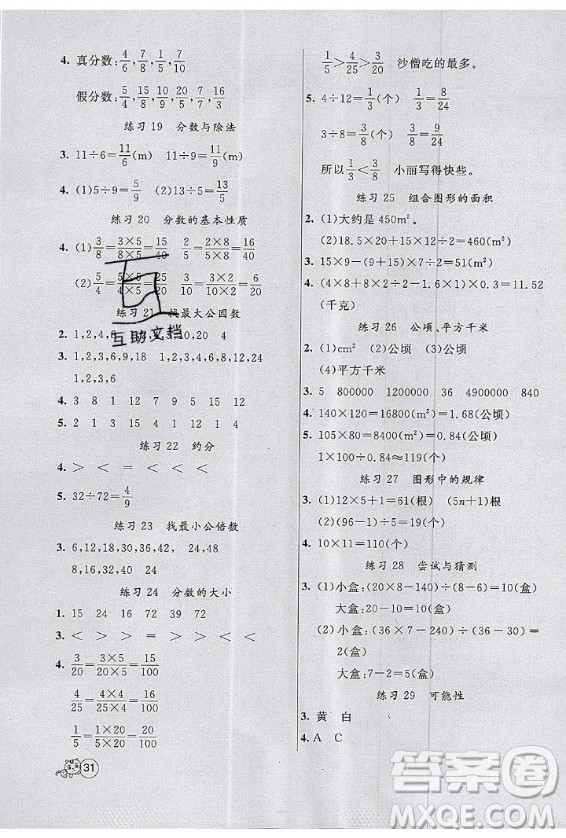 4. 真分数: 4/6 7/8 1/5 7/8
假分数: 5/4 15/8 10/9 5/5 16/15
练习 19 分数与除法
3. 11÷6=11/6(m) 11÷6=11/6(m)
4. (1)5÷9=5/9 (2)13÷5=13/5
练习 20 分数的基本性质
4. (1)3/8=3×5/8×5=15/40 2/5=2×8/5×8=16/40
(2)5/4=5×5/4×5=25/20 3/10=3×2/10×2=6/20
练习 21 找最大公因数
2. 1,2,4,8 1,2,4,5,10,20 4
3. 1,2,3,6,9,18 1,2,3,4,6,8,12,24
1,2,3,6
4. 3 1 8 1 3 4 9 12
5. 1 2 1 5 7 1
练习 22 约分
4. > < = < = >
5. 32÷72=4/9
练习 23 找最小公倍数
3. 6,12,18,30,36,42, 24,48
8,16,32,40
练习 24 分数的大小
1. 15 24 16 72 39 72
3. > < > > < <
4. 3/20=3×5/20×5=15/100
4/25=4×4/25×4=16/100
1/5=1×20/5×20=20/100
31
1/5>4/25>3/20 沙僧吃的最多。
5. 4÷12=1/3(个) 1/3=8/24
3÷8=3/8(个) 3/8=9/24
所以1/3<3/8 小丽写得快些。
练习 25 组合图形的面积
2. (1)大约是450m²。
(2)18.5×20+15×12÷2=460(m²)
3. 15×9-(9+15)×1÷2=123(m²)
4. (4×8+4×2÷2-1.6×1)×0.3=11.52
(千克)
练习 26 公顷、平方千米
2. (1)cm² (2)公顷 (3)公顷
(4)平方千米
3. 5 800000 1200000 36 4800 840
4. 140×120=16800(m²)=1.68(公顷)
5. 105×80=8400(m²)=0.84(公顷)
1×100×0.84=84(个)
练习 27 图形中的规律
3. (1)12×5+1=61(根) (5n+1)(根)
(2)(96-1)÷5=19(个)
4. 10×11=110(个)
练习 28 尝试与猜测
3. (1)小盒:(20×8-140)÷(8-6)=10(盒)
大盒:20-10=10(盒)
(2)小盒:(36×7-240)÷(36-30)
=2(盒)
大盒:7-2=5(盒)
练习 29 可能性
3. 黄 白
4. A C
互助文档
答案卷
MXQE.COM